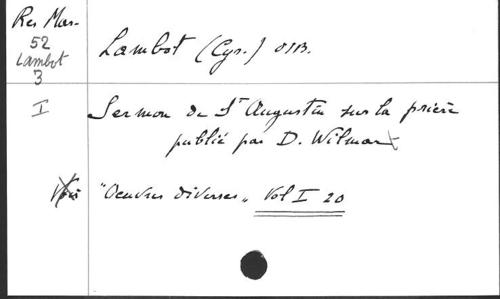 Res Mas.
52
Lambot
3
Lambot (Cyr.) OSB.
I
Sermon de St Augustin sur la prière
publié par D. Wilmart
Voir "Oeuvres diverses" Vol I 20